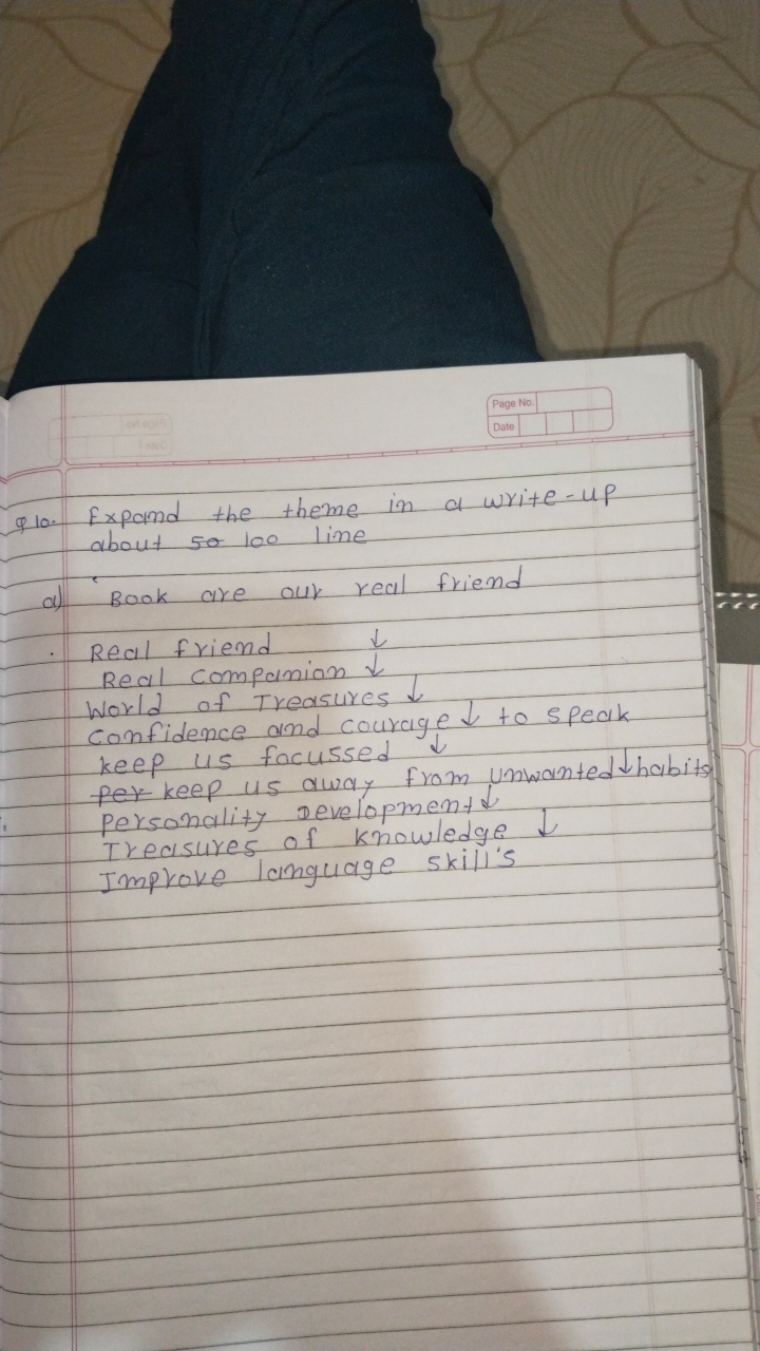 Page No.
Date
Q 10. Expand the theme in a write-up
about 50 100 line
a) 'Book are our real friend
. Real friend ↓
Real companion ↓
World of Treasures ↓
confidence and courage ↓ to speak
keep us focussed ↓
per keep us away from unwanted ↓ habits
Personality Development ↓
Treasures of knowledge ↓
Improve language skill's